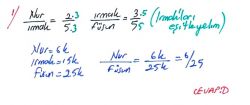 1/ Nur/Irmak = 2.3/5.3 Irmak/Füsun = 3.5/5.5 (Irmak'ları eşitleyelim)
Nur = 6k
Irmak = 15k
Füsun = 25k
Nur/Füsun = 6k/25k = 6/25
CEVAP: D